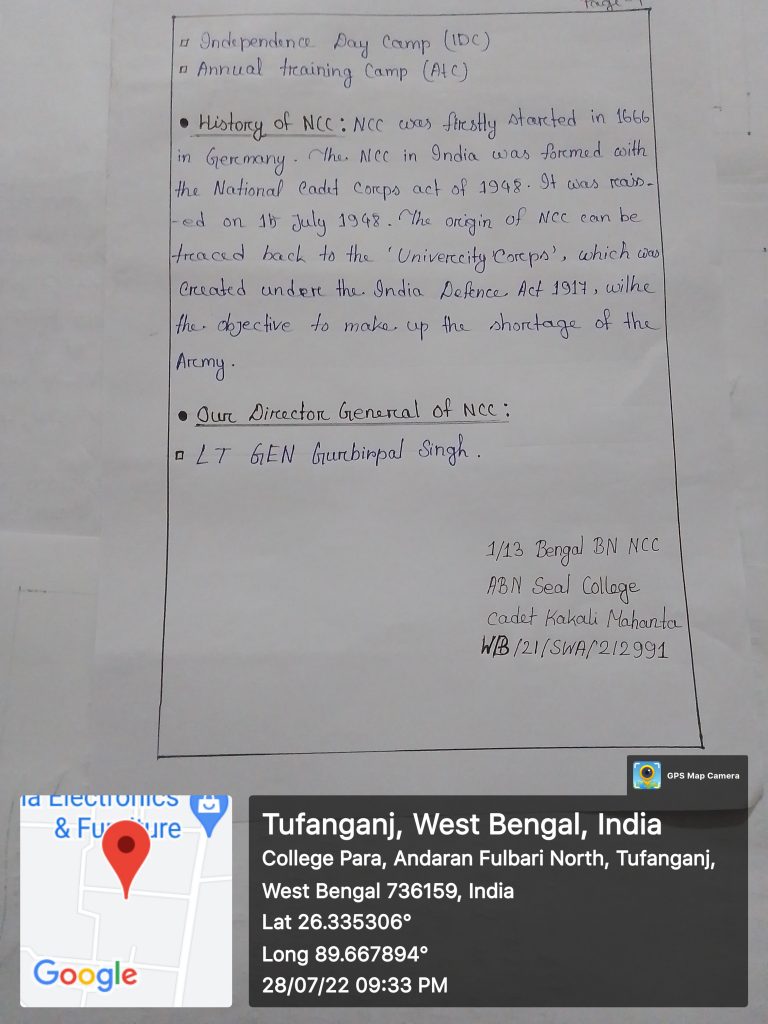 Page-
□ Independence Day Camp (IDC)
□ Annual training Camp (AtC)
• History of NCC: NCC was firestly starcted in 1666
in Gercmany. The NCC in India was forcmed with
the National Cadet Corcps act of 1948. It was reais-
-ed on 15 July 1948. The origin of NCC can be
treaced back to the 'Univercity Corcps', which was
Creeated undere the India Defence Act 1917, withe
the objective to make up the shorctage of the
Arcmy.
• Our Director General of NCC:
□ LT GEN Gurcbirpal Singh.
1/13 Bengal BN NCC
ABN Seal College
Cadet Kakali Mahanta
WB/21/SWA/212991
GPS Map Camera
la Electronics
& Furniture
Google
Tufanganj, West Bengal, India
College Para, Andaran Fulbari North, Tufanganj,
West Bengal 736159, India
Lat 26.335306°
Long 89.667894°
28/07/22 09:33 PM